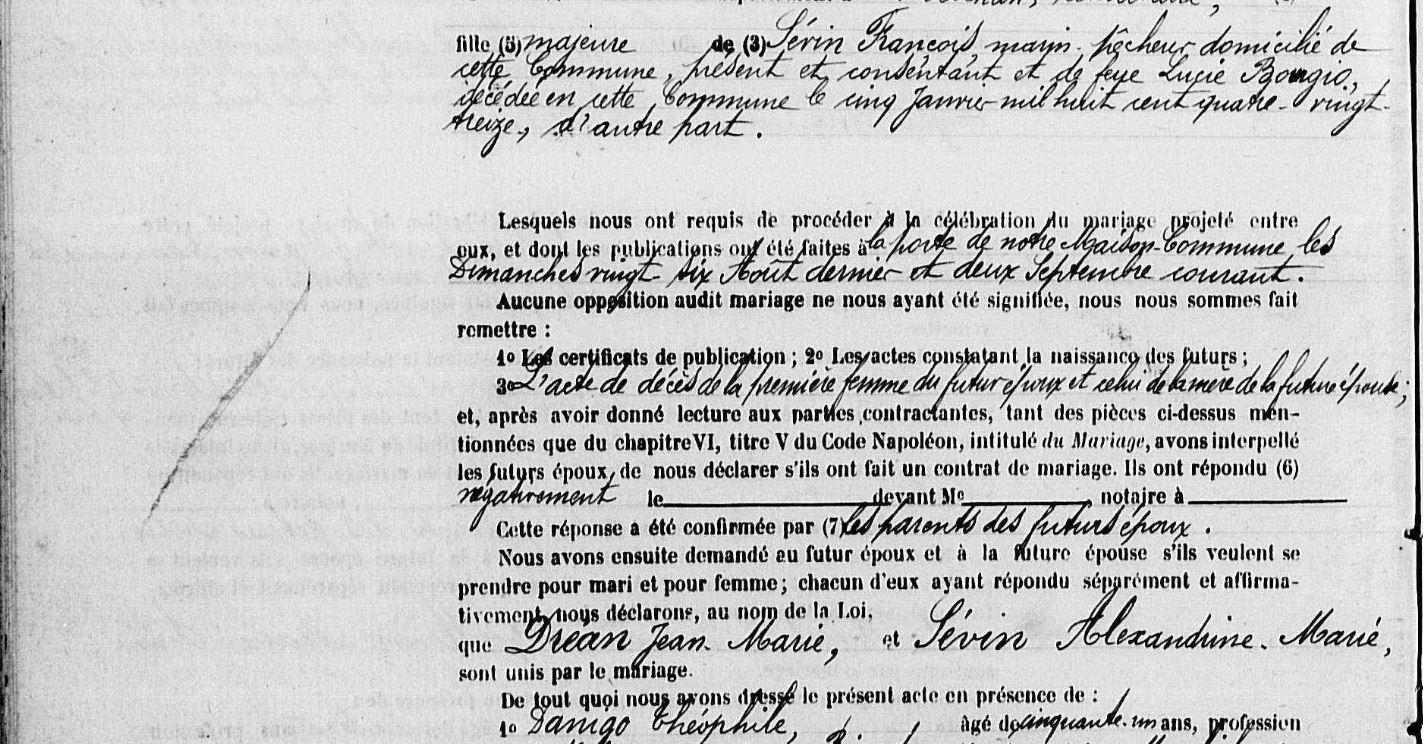 fille (3) majeure de (3) Sévin François, marin-pêcheur domicilié de
cette Commune, présent et consentant et de feue Lucie
décédée en cette Commune le cinq Janvier mil huit cent quatre-vingt-
treize, d'autre part.
Lesquels nous ont requis de procéder à la célébration du mariage projeté entre
eux, et dont les publications ont été faites à la porte de notre Maison-Commune les
Dimanches vingt six Août dernier et deux Septembre courant.
Aucune opposition audit mariage ne nous ayant été signifiée, nous nous sommes fait
remettre :
1º Les certificats de publication ; 2º Les actes constatant la naissance des futurs ;
3º L'acte de décès de la première femme du futur époux et celui de la mère de la future épouse ;
et, après avoir donné lecture aux parties contractantes, tant des pièces ci-dessus men-
tionnées que du chapitre VI, titre V du Code Napoléon, intitulé du Mariage, avons interpellé
les futurs époux, de nous déclarer s'ils ont fait un contrat de mariage. Ils ont répondu (6)
négativement le devant Me , notaire à
Cette réponse a été confirmée par (7) les parents des futurs époux.
Nous avons ensuite demandé au futur époux et à la future épouse s'ils veulent se
prendre pour mari et pour femme ; chacun d'eux ayant répondu séparément et affirma-
tivement, nous déclarons, au nom de la Loi,
que Dréan Jean-Marie, et Sévin Alexandrine-Marie,
sont unis par le mariage.
De tout quoi nous avons dressé le présent acte en présence de :
1º Danigo Théophile, âgé de cinquante-un ans, profession